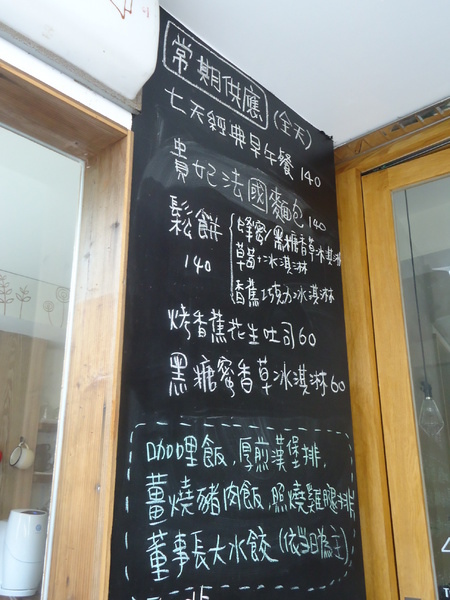 常期供應 (全天)
七天經典早午餐 140
貴妃法國麵包 140
鬆餅
140
蜂蜜, 黑糖香草冰淇淋
草莓, 冰淇淋
香蕉巧克力冰淇淋
烤香蕉花生吐司 60
黑糖蜜香草冰淇淋 60
咖哩飯, 厚煎漢堡排,
薑燒豬肉飯, 照燒雞腿排
董事長大水餃 (依當日為主)